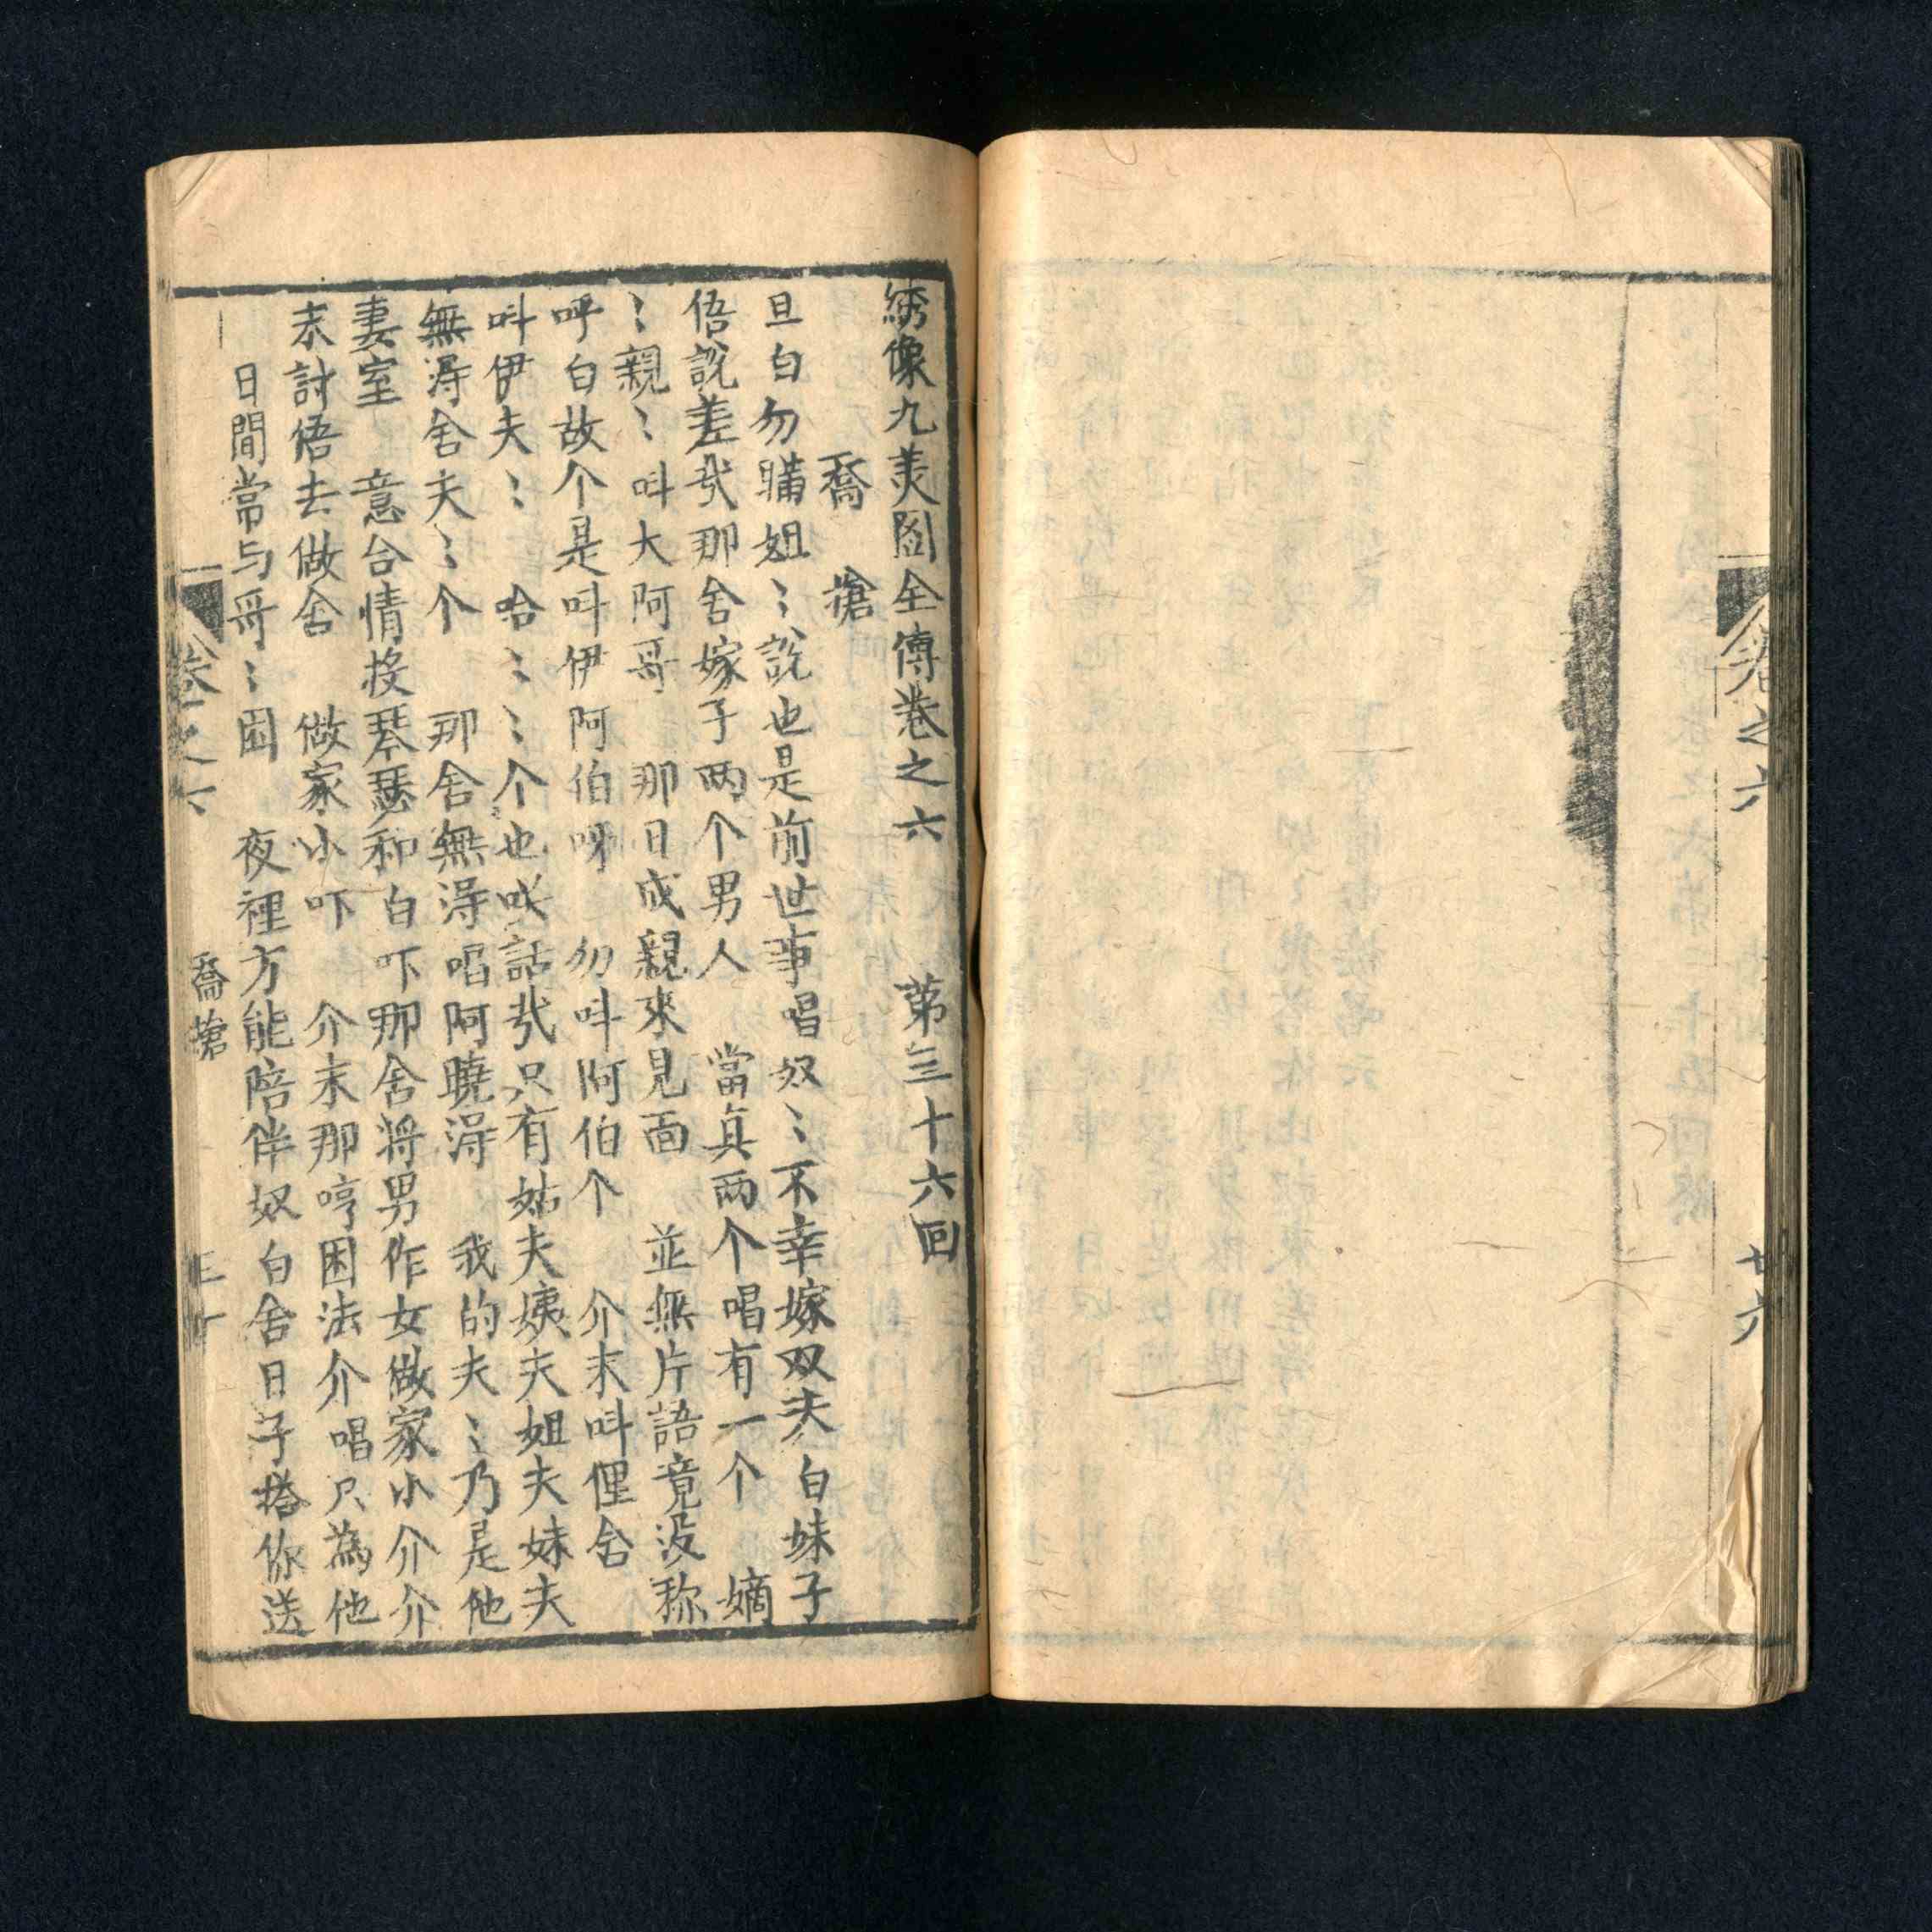 卷之六
廿六
綉像九美圖全傳卷之六 第三十六回
喬搶
旦白勿瞞姐〻說也是前世事唱奴〻不幸嫁双夫白妹子
悟說差哉那舍嫁子両个男人 當真両个唱有一个 嫡
〻親〻呌大阿哥 那日成親來見面 並無片語竟没称
呼白故个是呌伊阿伯呀 勿呌阿伯个 介末呌俚舍
呌伊夫〻 哈〻〻个也咲話哉只有姑夫姨夫姐夫妹夫
無淂舍夫〻个 那舍無淂唱阿曉淂 我的夫〻乃是他
妻室 意合情投琴瑟和白吓那舍將男作女做家小介介
末討悟去做舍 做家小吓 介末那哼困法介唱只為他
日間當与哥〻困 夜裡方能陪伴奴白舍日子搭你送
卷之六 喬搶 三十